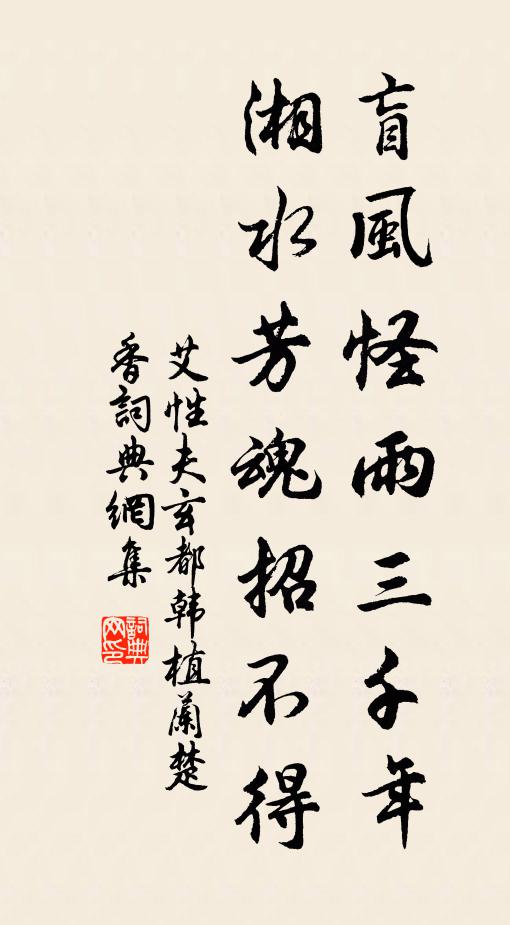 盲風怪雨三千年
湘水芳魂招不得
艾性夫玄都韩植蘭楚
香詞典網集
詞典网印